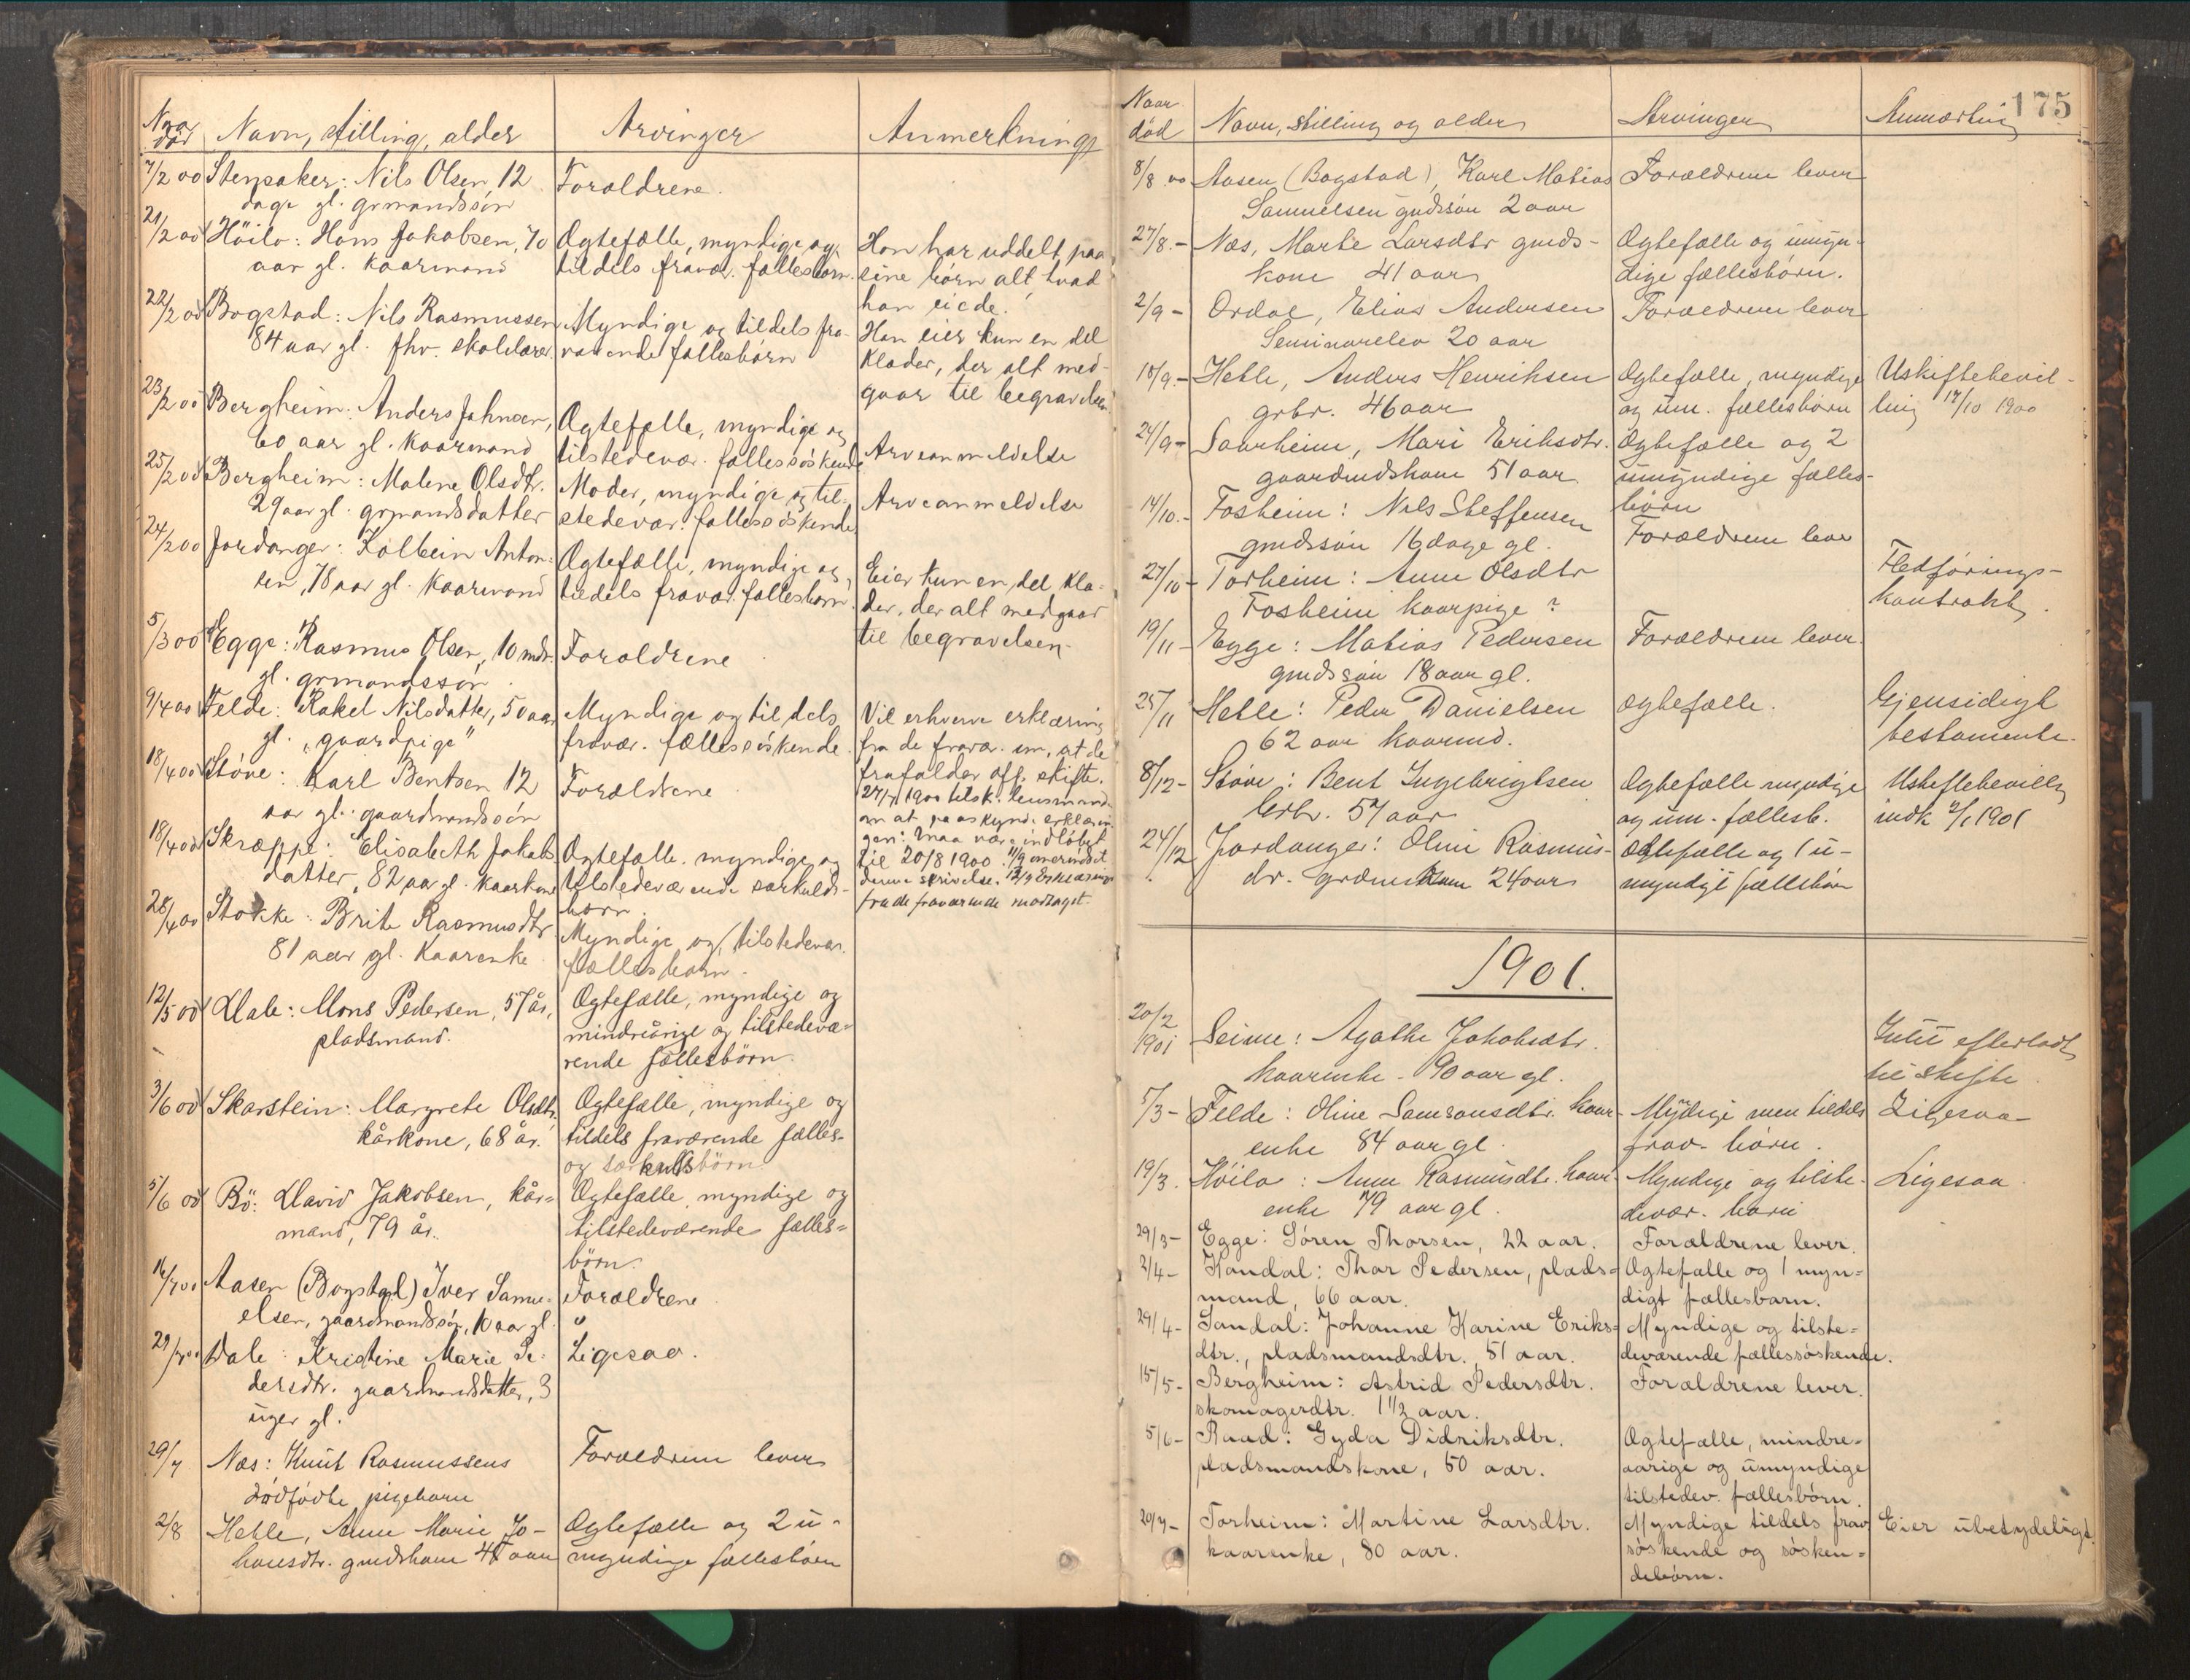 Naar død Navn, stilling, alder Arvinger Anmerkning
7/2 00 Stensaker: Nils Olsen, 12 Forældrene.
dage gl. grmandssøn
21/2 00 Höilo: Hans Jakobsen, 70 Ægtefælle, myndige og Han har uddelt paa
aar gl. kaarmand tildels fravær. fællesbörn. sine börn alt hvad
han eiede.
22/2 00 Bogstad: Nils Rasmussen Myndige og tildels fra- Han eier kun en del
84 aar gl. fhv. skolelærer. værende fællesbörn klæder, der alt med-
gaar til begravelsen.
23/2 00 Bergheim: Anders Johnsen, Ægtefælle, myndige og
60 aar gl. kaarmand tilstedevær. fællessöskende Arveanmeldelse
25/2 00 Bergheim: Malene Olsdtr. Moder, myndige og til- Arveanmeldelse
29 aar gl. grmandsdatter stedevær. fællessöskende
24/2 00 Jordanger: Kolbein Anton- Ægtefælle, myndige og Eier kun en del klæ-
sen, 78 aar gl. kaarmand tildels fravær. fællesbörn. der, der alt medgaar
til begravelsen.
5/3 00 Egge: Rasmus Olsen, 10 mdr. Forældrene
gl. grmandssön.
9/4 00 Felde: Rakel Nilsdatter, 50 aar Myndige og tildels Vil erhverve erklæring
gl. "gaardpige" fravær. fællessöskende. fra de fravær. om, at de
frafalder off. skifte.
18/4 00 Støve: Karl Bentsen 12 Forældrene 27/7 1900 tilsk. lensmand
aar gl. gaardmandssön om at paaskynd. erklærin-
gen: maa være indløbet
18/4 00 Skræppe: Elisabeth Jakobs Ægtefælle. myndige og til 20/8 1900. 11/9 omerindret
datter, 82 aar gl. kaarkone tilstedeværende særkulds- denne skrivelse. 12/9 Erklæring
börn. fra de fraværende modtaget.
28/4 00 Stokke: Brite Rasmusdtr Myndige og tilstedevær.
81 aar gl. Kaarenke fællesbörn.
12/5 00 Dale: Mons Pedersen, 57 år, Ægtefælle, myndige og
pladsmand. mindreårige og tilstedevæ-
rende fællesbörn.
3/6 00 Skarstein: Margrete Olsdtr. Ægtefælle, myndige og
kårkone, 68 år. tildels fraværende fælles-
og særkuldsbörn
5/6 00 Bö: David Jakobsen, kår- Ægtefælle, myndige og
mand, 79 år. tilstedeværende fælles-
börn.
16/7 00 Aasen (Bogstad) Iver Samu- Forældrene
elsen, gaardmandssön, 10 aar gl. "
29/7 00 Dale: Kristine Marie Pe- Ligesaa.
dersdtr. gaardmandsdatter, 3
uger gl.
29/7 Næs: Knut Rasmussens Forældrene lever
dödfödte pigebarn
2/8 Heble, Anne Marie Jo- Ægtefælle og 2 u-
hansdtr. gmdskone 41 aar myndige fællesbörn
175
Naar død Navn, stilling og alder Arvinger Anmærkning
8/8 00 Aasen (Bogstad), Karl Matias Forældrene lever
Samuelsen gmdssön 2 aar
27/8 - Næs, Marte Larsdtr gmds- Ægtefælle og umyn-
kone 41 aar dige fællesbörn.
2/9 - Ordal, Elias Andersen Forældrene lever
Seminarelev 20 aar
18/9 - Heble, Anders Henriksen Ægtefælle, myndige Uskiftebevil-
grbr. 46 aar og um. fællesbörn ling 17/10 1900
24/9 - Saurheim, Mari Eriksdtr. Ægtefælle og 2
gaardmdskone 51 aar umyndige fælles-
börn
14/10 - Fosheim: Nils Steffensen Forældrene lever
gmdssön 16 dage gl.
27/10 - Torheim: Anne Olsdtr Fledförings-
Fosheim kaarpige ? kontrakt.
19/11 - Egge: Matias Pedersen Forældrene lever.
gmdssön 18 aar gl.
25/11 Heble: Peder Danielsen Ægtefælle. Gjensidigt
62 aar kaarmd. testamente.
8/12 - Støve: Bent Ingebrigtsen Ægtefælle myndige Uskiftebevilln
Grbr. 57 aar og um. fællesb. indk 2/1 1901
24/12 Jordanger: Oline Rasmus- Ægtefælle og 1 u-
dr. grdmdkone 24 aar myndigt fællesbarn
1901.
20/2 1901 Seime: Agathe Jakobsdtr. Intet efterladt
kaarenke - 90 aar gl. til skifte.
5/3 - Felde: Oline Samsonsdtr. kaar- Myndige men tildels Ligesaa
enke 84 aar gl. frav. börn.
19/3. Höilo: Anne Rasmusdtr. kaar- Myndige og tilste- Ligesaa.
enke 79 aar gl. devær. börn
29/3 - Egge: Søren Thorsen, 22 aar. Forældrene lever.
2/4 - Kandal: Thor Pedersen, plads- Ægtefælle og 1 myn-
mand, 66 aar. digt fællesbarn.
29/4 - Sandal: Johanne Karine Eriks- Myndige og tilste-
dtr., pladsmandsdtr. 51 aar. deværende fællessøskende.
15/5 - Bergheim: Astrid Pedersdtr. Forældrene lever.
skomagerdtr. 1 1/2 aar.
5/6 - Raad: Gyda Didriksdtr. Ægtefælle, mindre-
pladsmandskone, 50 aar. aarige og umyndige
tilstedev. fællesbörn.
20/7 - Torheim: Martine Larsdtr. Myndige tildels frav Eier ubetydeligt.
kaarenke, 80 aar. søskende og søsken-
debørn.